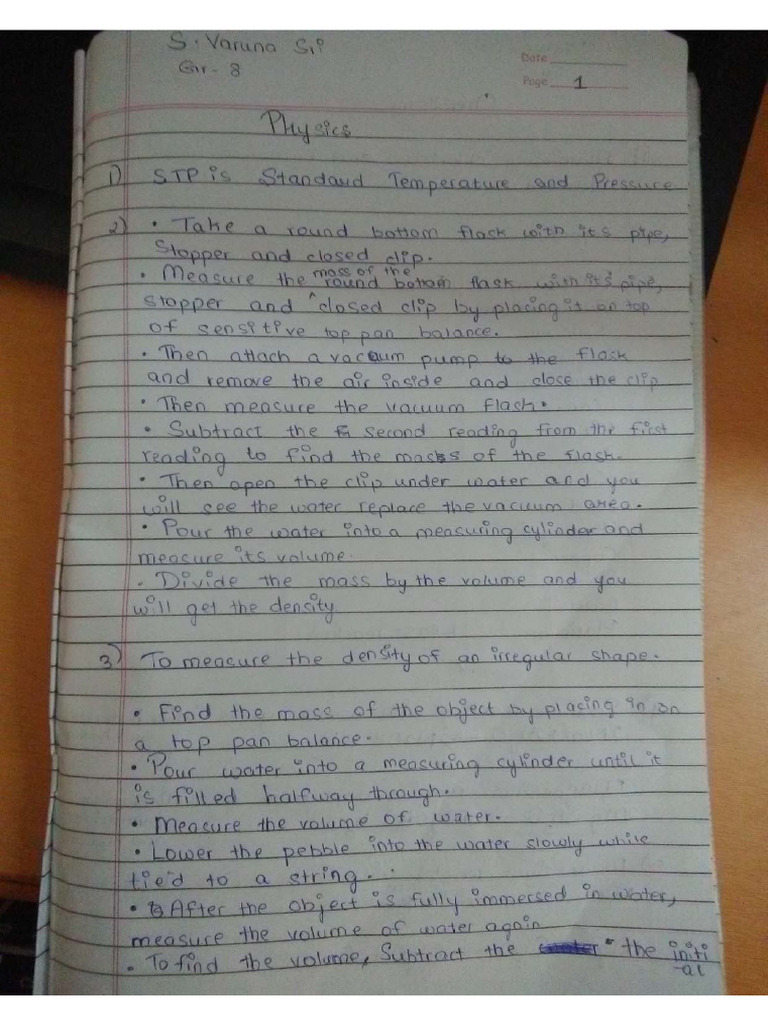 S. Varuna Sri
Gr - 8
Date
Page 1
Physics
1) STP is Standard Temperature and Pressure
2) • Take a round bottom flask with its pipe,
Stopper and closed clip.
• Measure the mass of the round bottom flask with its pipe,
stopper and closed clip by placing it on top
of sensitive top pan balance.
• Then attach a vacuum pump to the flask
and remove the air inside and close the clip
• Then measure the vacuum flask.
• Subtract the second reading from the first
reading to find the mass of the flask.
• Then open the clip under water and you
will see the water replace the vacuum area.
• Pour the water into a measuring cylinder and
measure its volume.
• Divide the mass by the volume and you
will get the density
3) To measure the density of an irregular shape.
• Find the mass of the object by placing in on
a top pan balance.
• Pour water into a measuring cylinder until it
is filled halfway through.
• Measure the volume of water.
• Lower the pebble into the water slowly while
tied to a string.
• After the object is fully immersed in water,
measure the volume of water again
• To find the volume, Subtract the the initi
-al